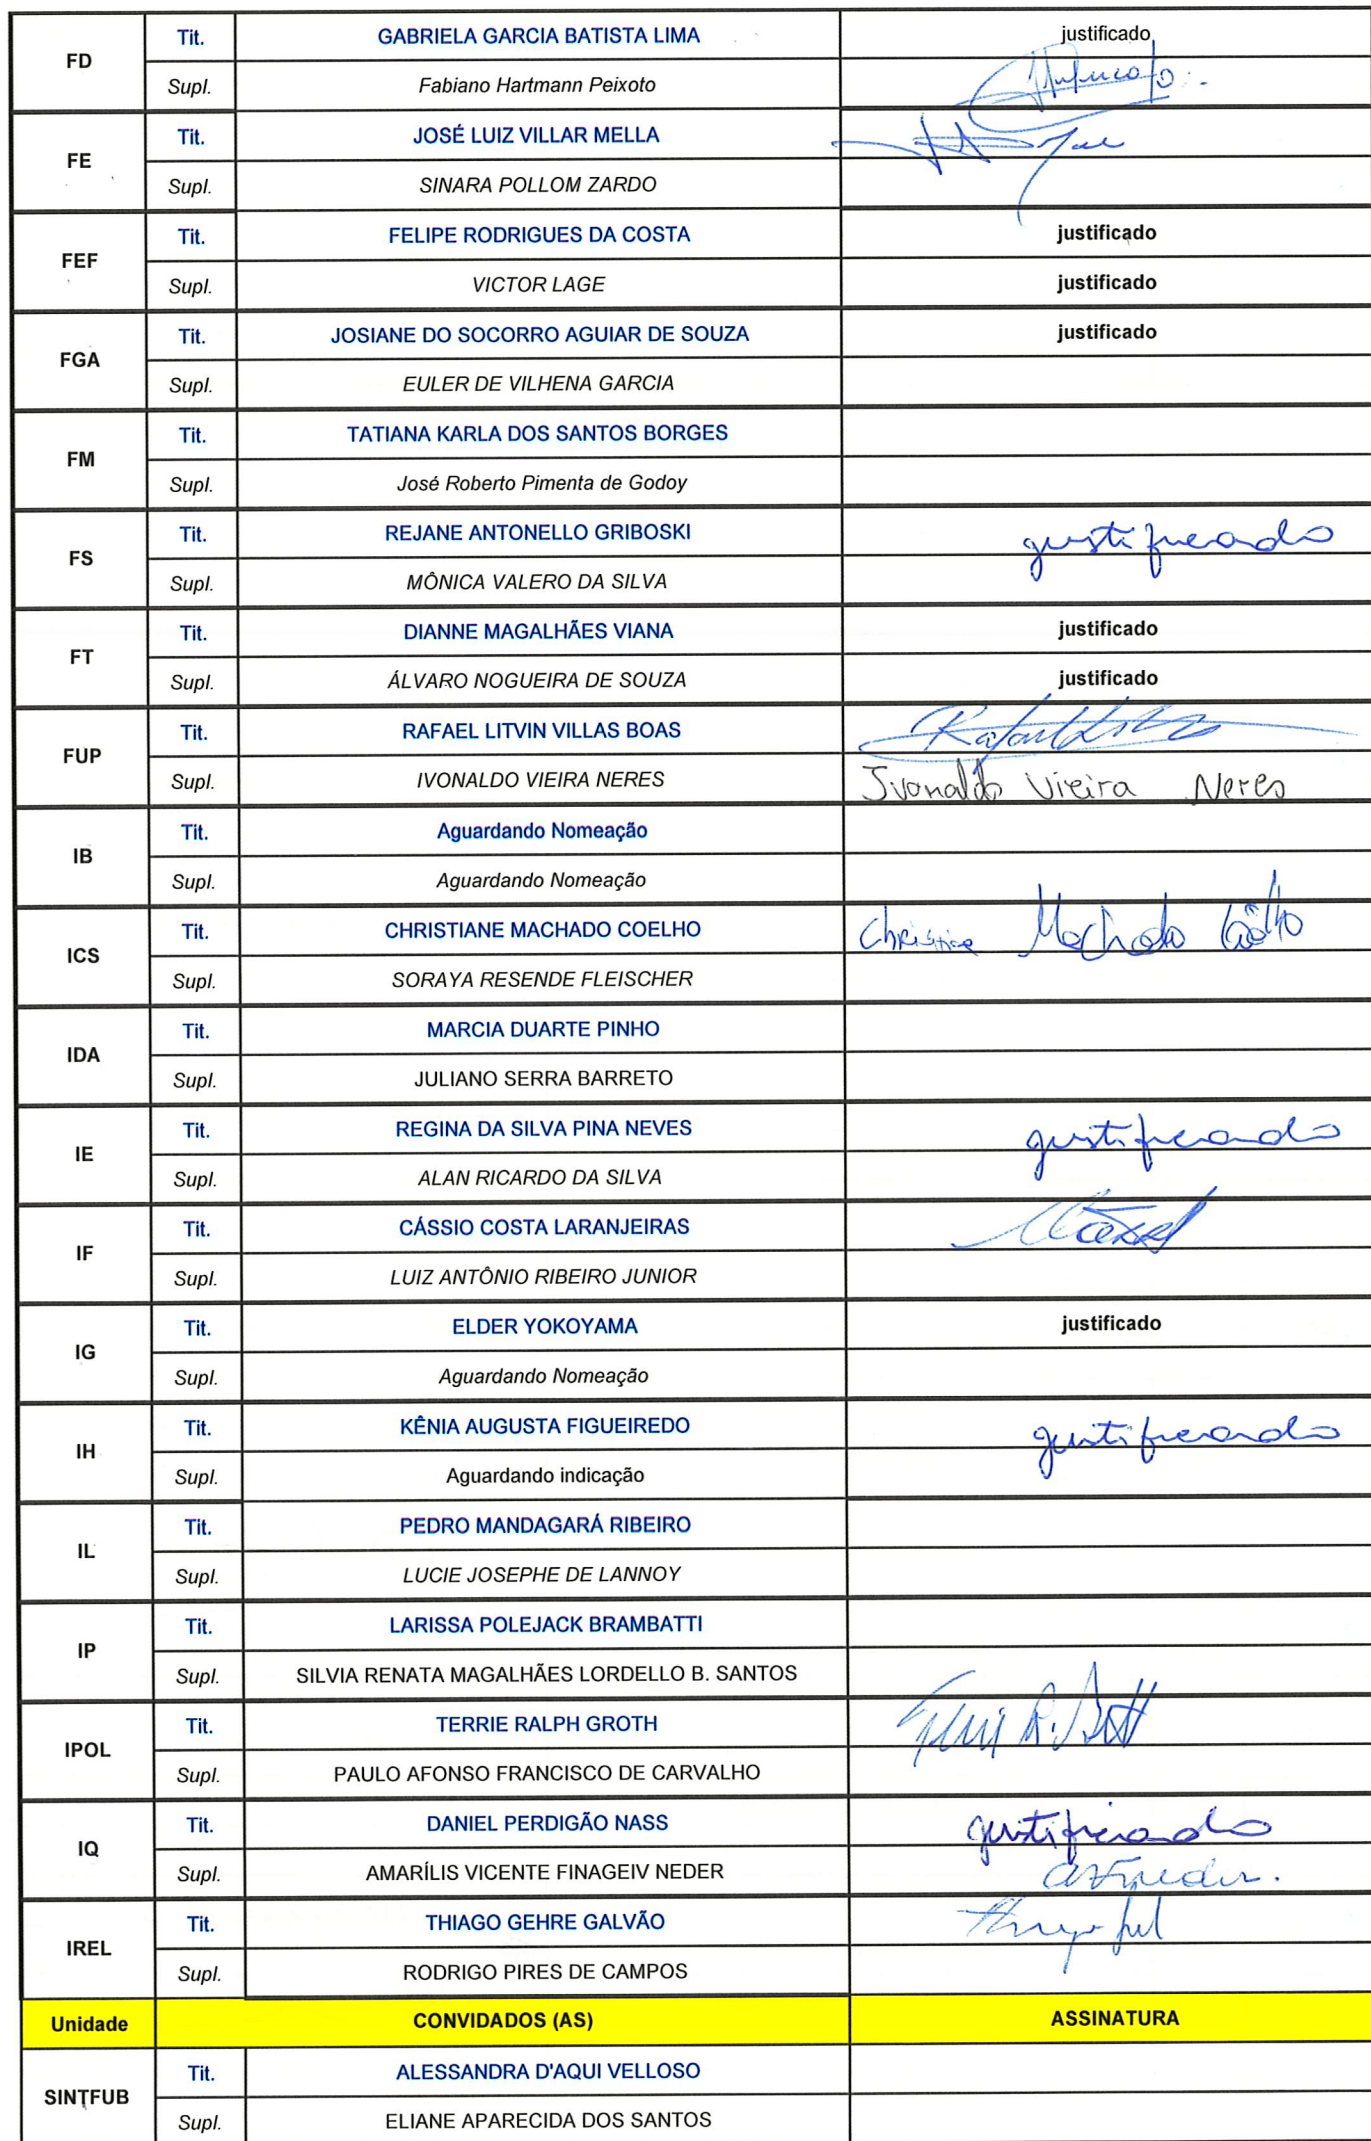 FD Tit. GABRIELA GARCIA BATISTA LIMA justificado
Supl. Fabiano Hartmann Peixoto
FE Tit. JOSÉ LUIZ VILLAR MELLA
Supl. SINARA POLLOM ZARDO
FEF Tit. FELIPE RODRIGUES DA COSTA justificado
Supl. VICTOR LAGE justificado
FGA Tit. JOSIANE DO SOCORRO AGUIAR DE SOUZA justificado
Supl. EULER DE VILHENA GARCIA
FM Tit. TATIANA KARLA DOS SANTOS BORGES
Supl. José Roberto Pimenta de Godoy
FS Tit. REJANE ANTONELLO GRIBOSKI justificado
Supl. MÔNICA VALERO DA SILVA
FT Tit. DIANNE MAGALHÃES VIANA justificado
Supl. ÁLVARO NOGUEIRA DE SOUZA justificado
FUP Tit. RAFAEL LITVIN VILLAS BOAS
Supl. IVONALDO VIEIRA NERES Ivonaldo Vieira Neres
IB Tit. Aguardando Nomeação
Supl. Aguardando Nomeação
ICS Tit. CHRISTIANE MACHADO COELHO Christiane Machado Coêlho
Supl. SORAYA RESENDE FLEISCHER
IDA Tit. MARCIA DUARTE PINHO
Supl. JULIANO SERRA BARRETO
IE Tit. REGINA DA SILVA PINA NEVES justificado
Supl. ALAN RICARDO DA SILVA
IF Tit. CÁSSIO COSTA LARANJEIRAS
Supl. LUIZ ANTÔNIO RIBEIRO JUNIOR
IG Tit. ELDER YOKOYAMA justificado
Supl. Aguardando Nomeação
IH Tit. KÊNIA AUGUSTA FIGUEIREDO justificado
Supl. Aguardando indicação
IL Tit. PEDRO MANDAGARÁ RIBEIRO
Supl. LUCIE JOSEPHE DE LANNOY
IP Tit. LARISSA POLEJACK BRAMBATTI
Supl. SILVIA RENATA MAGALHÃES LORDELLO B. SANTOS
IPOL Tit. TERRIE RALPH GROTH
Supl. PAULO AFONSO FRANCISCO DE CARVALHO
IQ Tit. DANIEL PERDIGÃO NASS justificado
Supl. AMARÍLIS VICENTE FINAGEIV NEDER
IREL Tit. THIAGO GEHRE GALVÃO
Supl. RODRIGO PIRES DE CAMPOS
Unidade CONVIDADOS (AS) ASSINATURA
SINTFUB Tit. ALESSANDRA D'AQUI VELLOSO
Supl. ELIANE APARECIDA DOS SANTOS